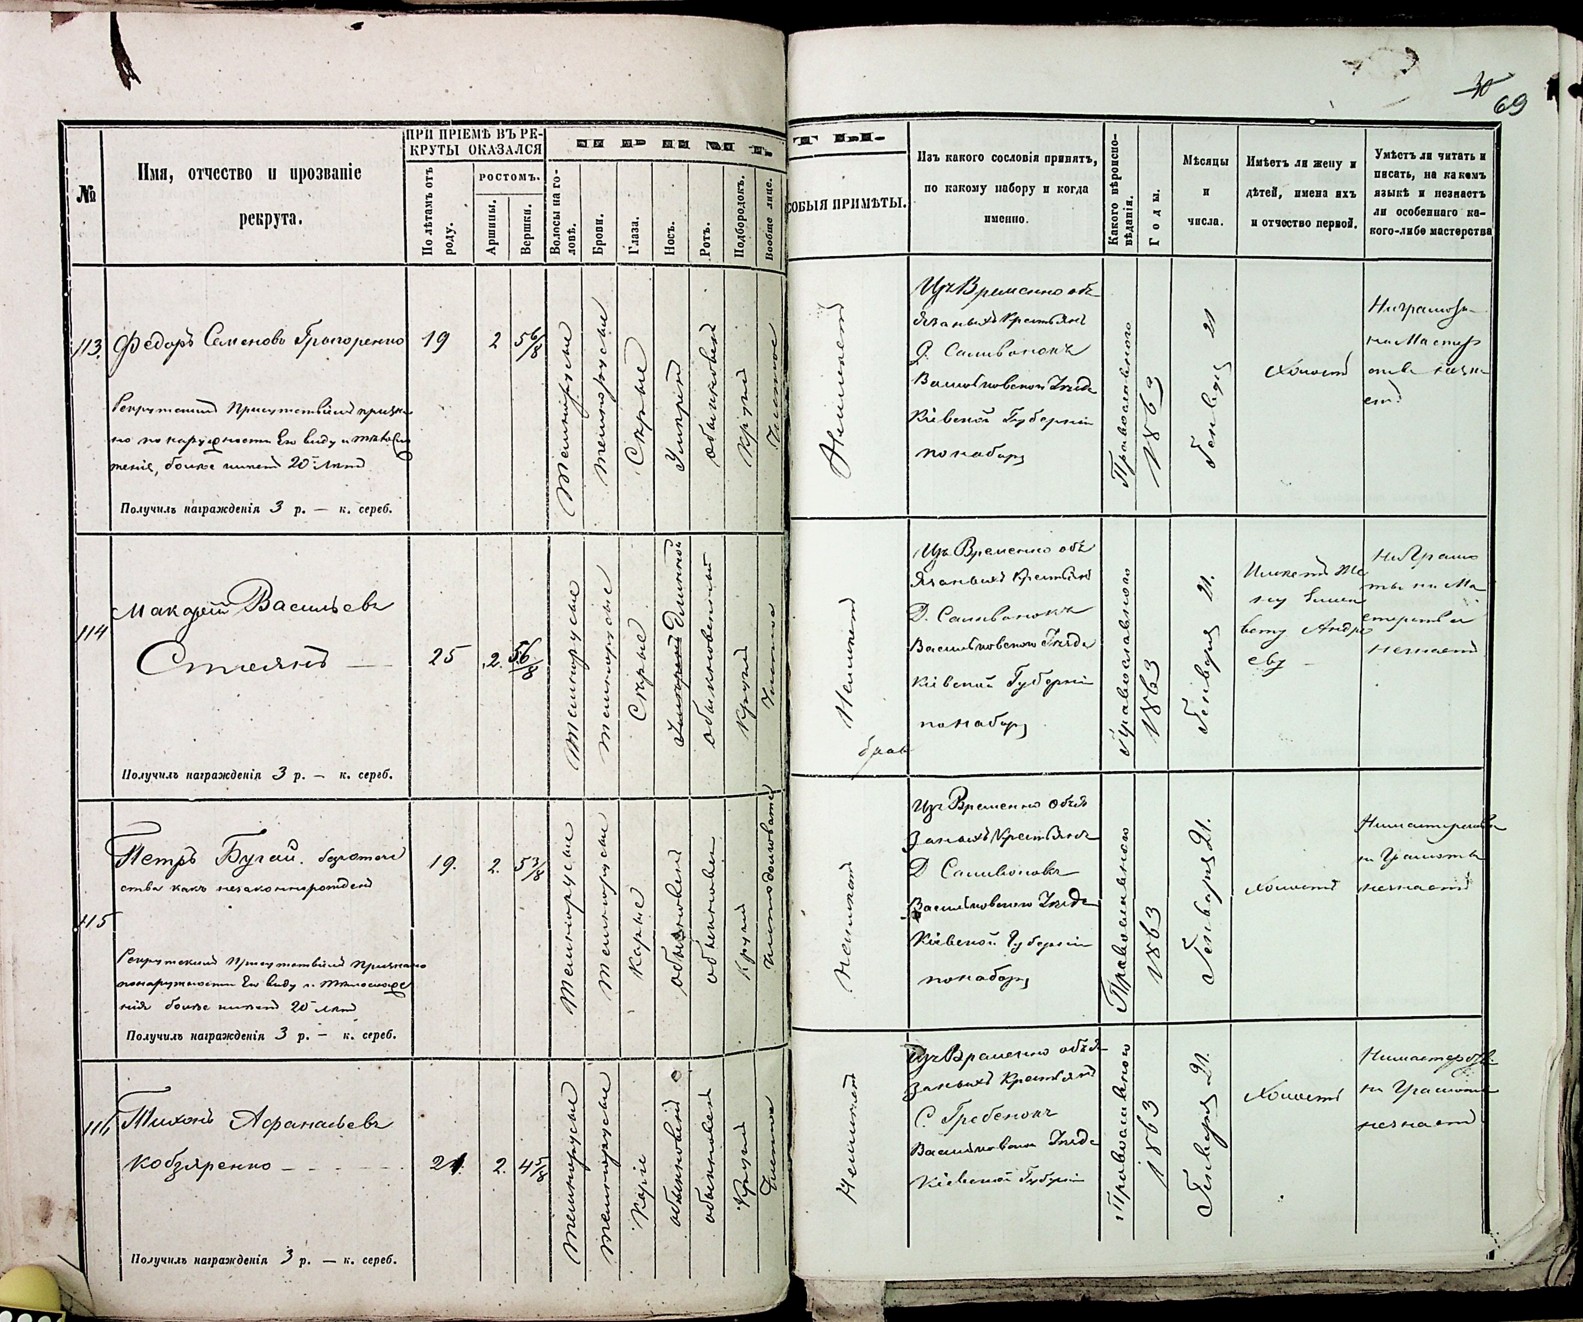 30
69
№
Имя, отчество и прозваніе
рекрута.
ПРИ ПРІЕМѢ ВЪ РЕ-
КРУТЫ ОКАЗАЛСЯ
По лѣтамъ отъ
роду.
РОСТОМЪ.
Аршины.
Вершки.
ПРИМѢТЫ.
Волосы на го-
ловѣ.
Брови.
Глаза.
Носъ.
Ротъ.
Подбородокъ.
Вообще лице.
ОСОБЫЯ ПРИМѢТЫ.
Изъ какого сословія принятъ,
по какому набору и когда
именно.
Какого вѣроиспо-
вѣданія.
Годы.
Мѣсяцы
и
числа.
Имѣетъ ли жену и
дѣтей, имена ихъ
и отчество первой.
Умѣетъ ли читать и
писать, на какомъ
языкѣ и незнаетъ
ли особеннаго ка-
кого-либо мастерства
113.
Федоръ Семеновъ Григоренко
Рекрутскимъ Присутствіемъ призна
но по наружности Его виду и тѣлосло
женію, болѣе имѣетъ 20 лѣтъ
Получилъ награжденія 3 р. — к. сереб.
19
2
5 6/8
Темнорусые
темнорусые
Сѣрые
Умѣрен
обыкновен
Круглый
Чистое
Неимѣетъ
Изъ Временно обя
занныхъ Крестьянъ
Д. Саливонокъ
Васильковского Уѣзда
Кіевской Губерніи
по набору
Православного
1863
Генваря 21
Холостъ
114
Макарій Васильевъ
25
2.
5 6/8
Получилъ награжденія 3 р. — к. сереб.
Темнорусые
темнорусые
Сѣрые
Умѣрен Длинной
обыкновенный
Круглый
Чистое
Неимѣетъ
Изъ Временно обя
занныхъ Крестьянъ
Д. Саливонокъ
Васильковского Уѣзда
Кіевской Губерніи
по набору
Православного
1863
Генваря 21.
Имѣетъ Же
ну Елиза
вету Андре
еву
Ни Грамо
ты ни Ма
стерства
незнаетъ
115
Петръ Бугай. безотече
ства какъ незаконнорожден
Рекрутскимъ Присутствіемъ Признано
по наружности Его виду и тѣлосложе
нія болѣе имѣетъ 20 лѣтъ
Получилъ награжденія 3 р. — к. сереб.
19.
2.
Темнорусые
темнорусые
Карые
обыкновен
обыкновен
Круглый
Неимѣетъ
Изъ Временно обя
занныхъ Крестьянъ
Д Саливонокъ
Васильковского Уѣзда
Кіевской Губерніи
по набору
Православного
1863
Генваря 21.
холостъ
Нимастерства
ни Грамоты
незнаетъ
116
Тихонъ Афанасьевъ
Кобзяренко
Получилъ награжденія 3 р. — к. сереб.
21
2.
4 5/8
темнорусые
темнорусые
Каріе
обыкновенный
обыкновен
Круглый
Чистое
Неимѣетъ
Изъ Временно обя
занныхъ Крестьянъ
С. Гребенокъ
Васильковского Уѣзда
Кіевской Губерніи
Православного
1863
Генваря 21.
Холостъ
Нимастерства
ни Грамоты
незнаетъ